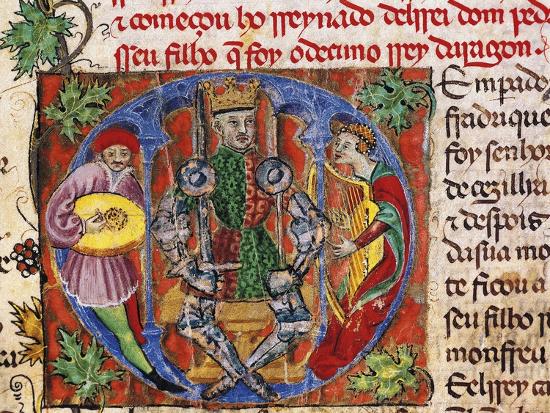 ⁊ começou ho rreynado delrrei dom ped
sseu filho q̃ foy o deçimo rrey daragon.
Em pado
ffradrique
foy senhor
de cezilia
⁊ despois
da sua mo
te ficou a
seu filho
monfreu
Eelrrey ca